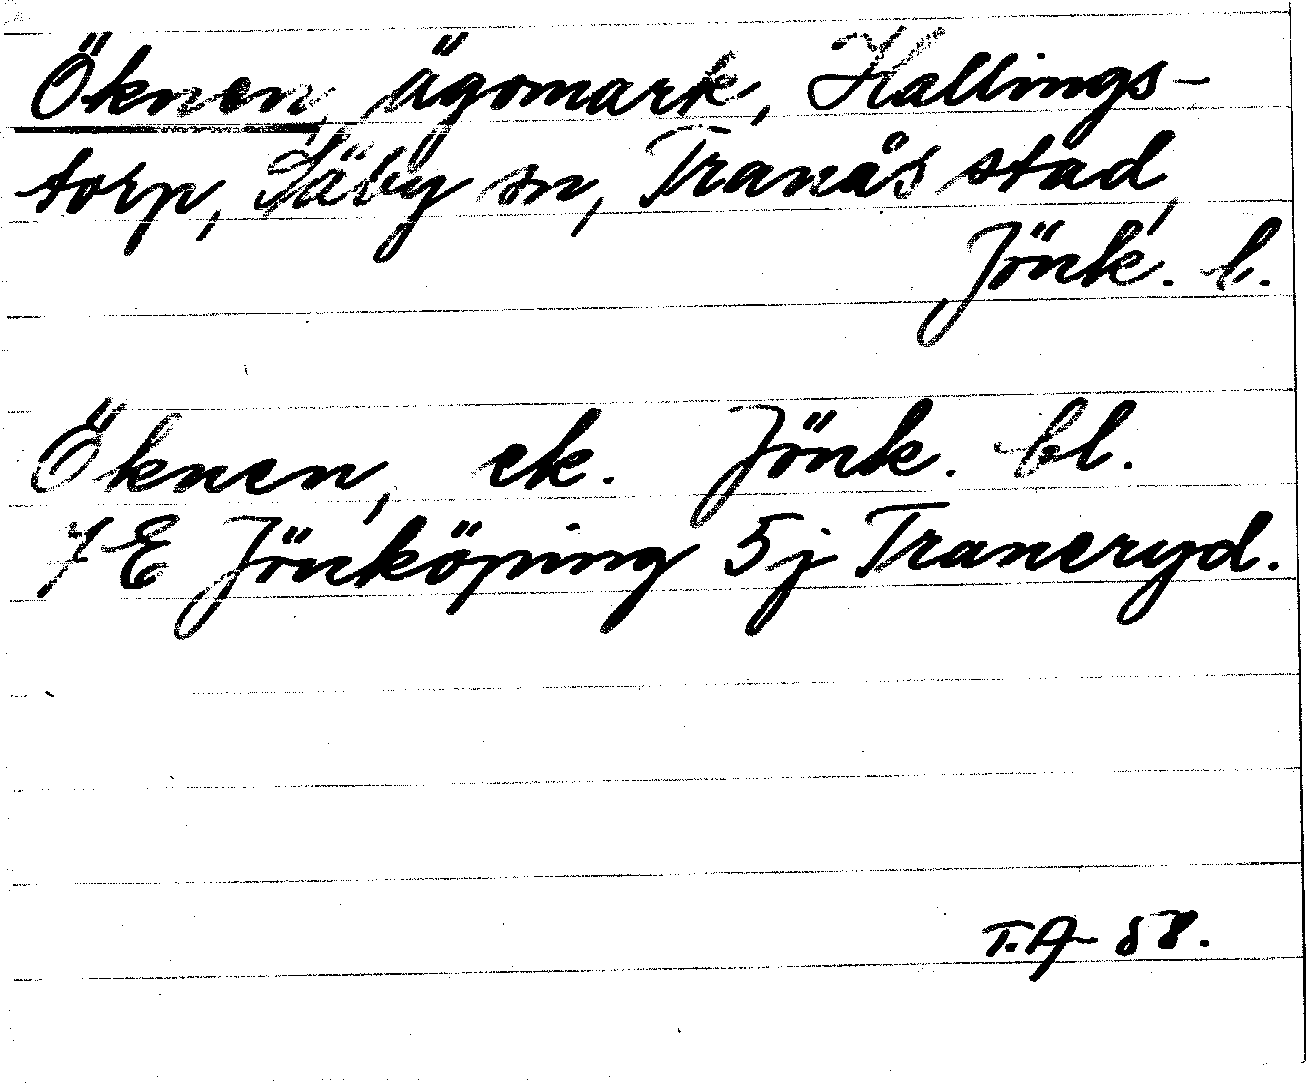 Öknen, ägomark, Hallings-
torp, Säby sn, Tranås stad,
Jönk. l.
Öknen, ek. Jönk. bl.
7E Jönköping 5j Traneryd.
T.A- 58.